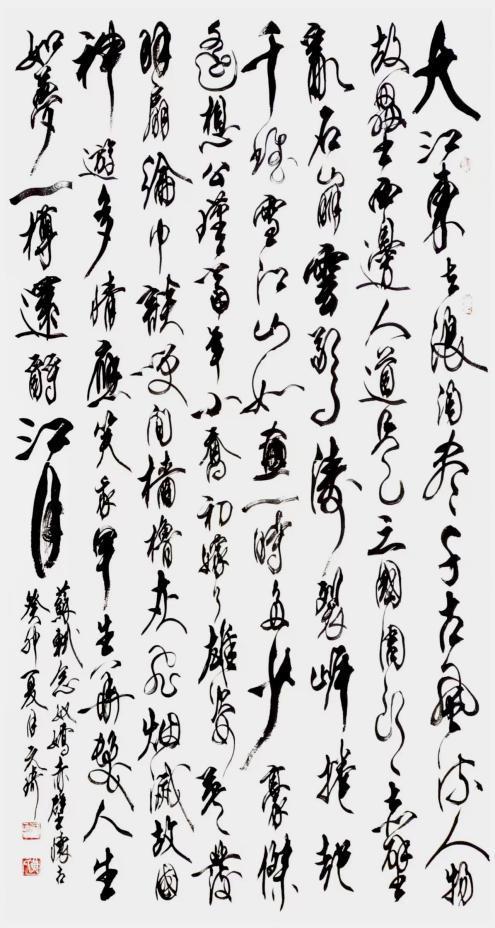 大江東去浪淘盡千古風流人物
故壘西邊人道是三國周郎赤壁
亂石崩雲驚濤裂岸捲起
千堆雪江山如畫一時多少豪傑
遙想公瑾當年小喬初嫁了雄姿英發
羽扇綸巾談笑間檣櫓灰飛烟滅故國
神遊多情應笑我早生華髮人生
如夢一樽還酹江月
蘇軾念奴嬌赤壁懷古
癸卯夏月